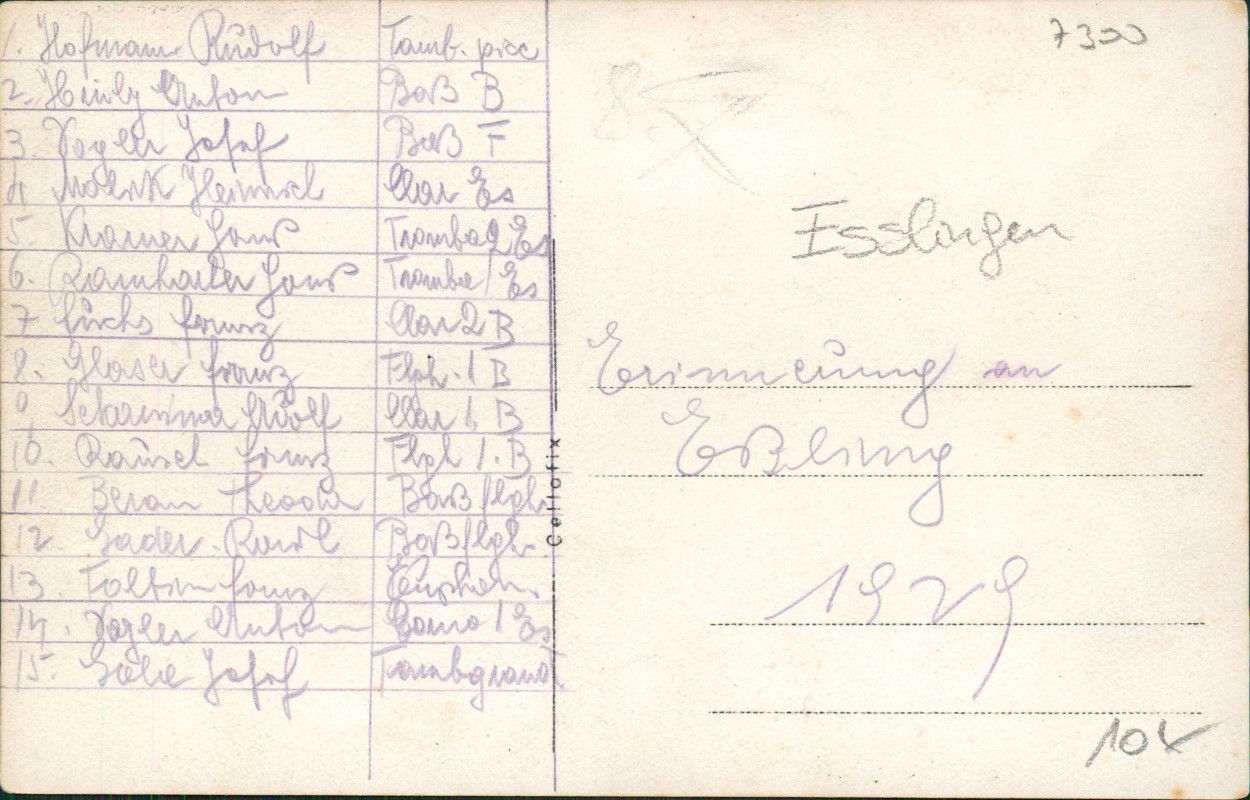 1. Hofmann Rudolf Tamb. picc
2. Anton Baß B
3. Vogler Josef Baß F
4 Heinrich Clar Es
5. Kramer Hans Tromba 2 Es
6. Hans Trombe 1 Es
7 Fuchs Franz Clar 2 B
8. Glaser Franz Flgh. 1 B
9 Adolf Clar 1. B
10. Rausch Franz Flgh 1. B
11. Beran Theodor Baß flgh.
12. Karl Baß flgh.
13. Franz
14. Vogler Anton Corno 1 Es
15. Josef Tambgrand
Cellofix
7300
8.
Esslingen
Erinnerung an
Eßling
1929